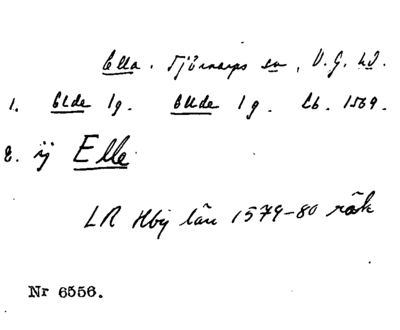 Ella. Tjörnarps sn, V. G. hd.
1. Elde 1 g. Elude 1 g. Lb. 1569.
2. ij Elle
LR Hbg län 1579-80 räk
Nr 6556.